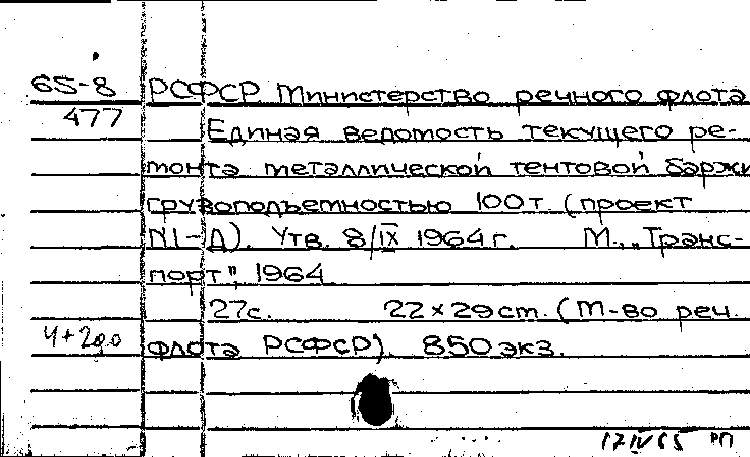 65-8 РСФСР. Министерство речного флота
477 Единая ведомость текущего ре-
монта металлической тентовой баржи
грузоподъемностью 100т. (проект
NI-Д). Утв. 8/IX 1964г. М., „Транс-
порт", 1964
27с. 22×29cm. (М-во реч.
флота РСФСР). 850 экз.
17 IV 65